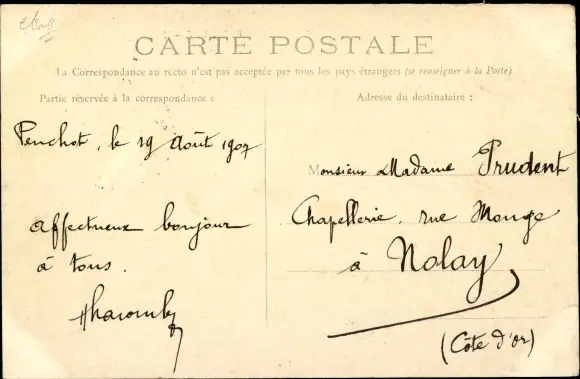 CARTE POSTALE
La Correspondance au recto n'est pas acceptée par tous les pays étrangers (se renseigner à la Poste)
Partie réservée à la correspondance :
Adresse du destinataire :
Penchot, le 19 août 1907
affectueux bonjour
à tous.
Monsieur & Madame Prudent
Chapellerie, rue Monge
à Nolay
(Côte d'or)